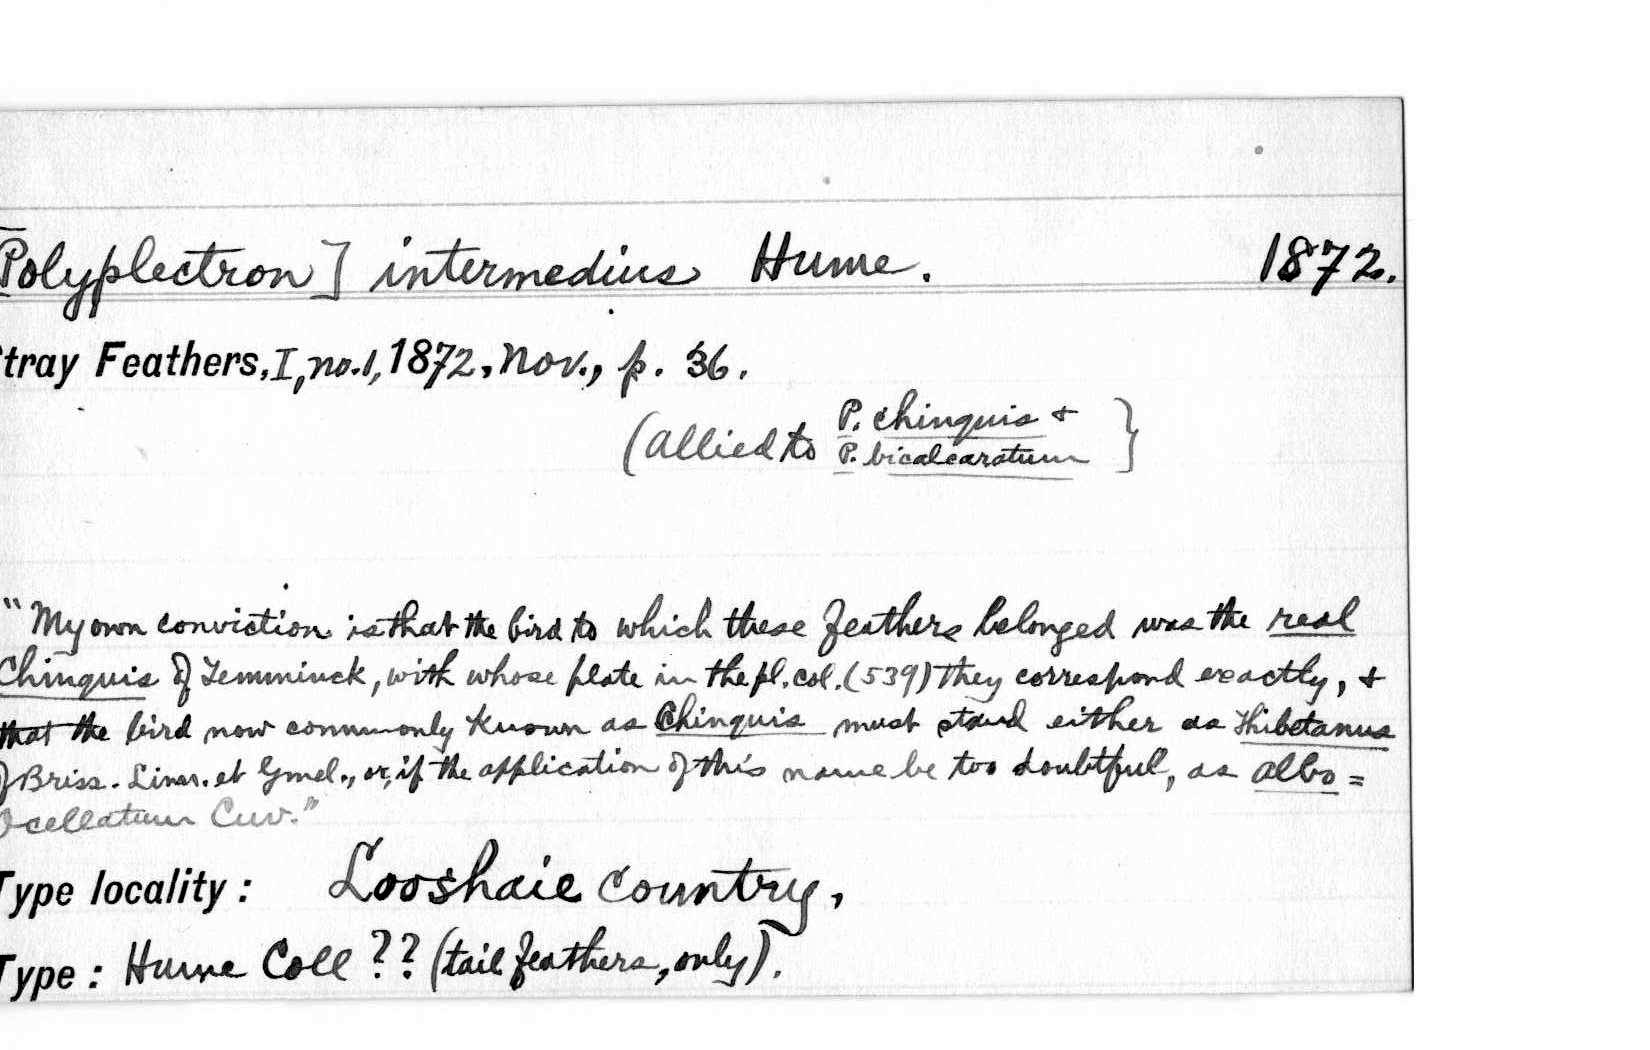 [Polyplectron] intermedius Hume. 1872.
Stray Feathers, I, no.1, 1872, Nov., p. 36.
(allied to P. chinquis &
P. bicalcaratum }
"My own conviction is that the bird to which these feathers belonged was the real
Chinquis of Temminck, with whose plate in the pl. col. (539) they correspond exactly, &
that the bird now commonly known as Chinquis must stand either as Thibetanus
of Briss. Linn. et Gmel., or, if the application of this name be too doubtful, as albo=
Ocellatum Cuv."
Type locality: Looshaie country,
Type: Hume Coll ?? (tail feathers, only).